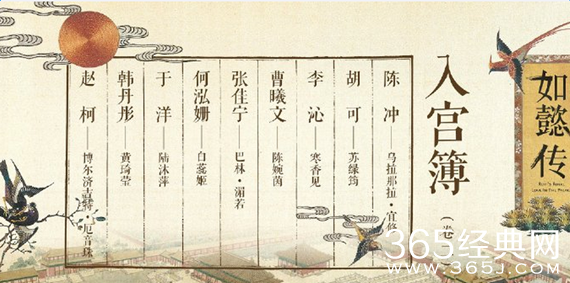 如懿传
入宫簿
陈冲——乌拉那拉·宜修
胡可——苏绿筠
李沁——寒香见
曹曦文——陈婉茵
张佳宁——巴林·湄若
何泓姗——白蕊姬
于洋——陆沐萍
韩丹彤——黄琦莹
赵柯——博尔济吉特·厄音珠
365经典网
WWW.365J.COM